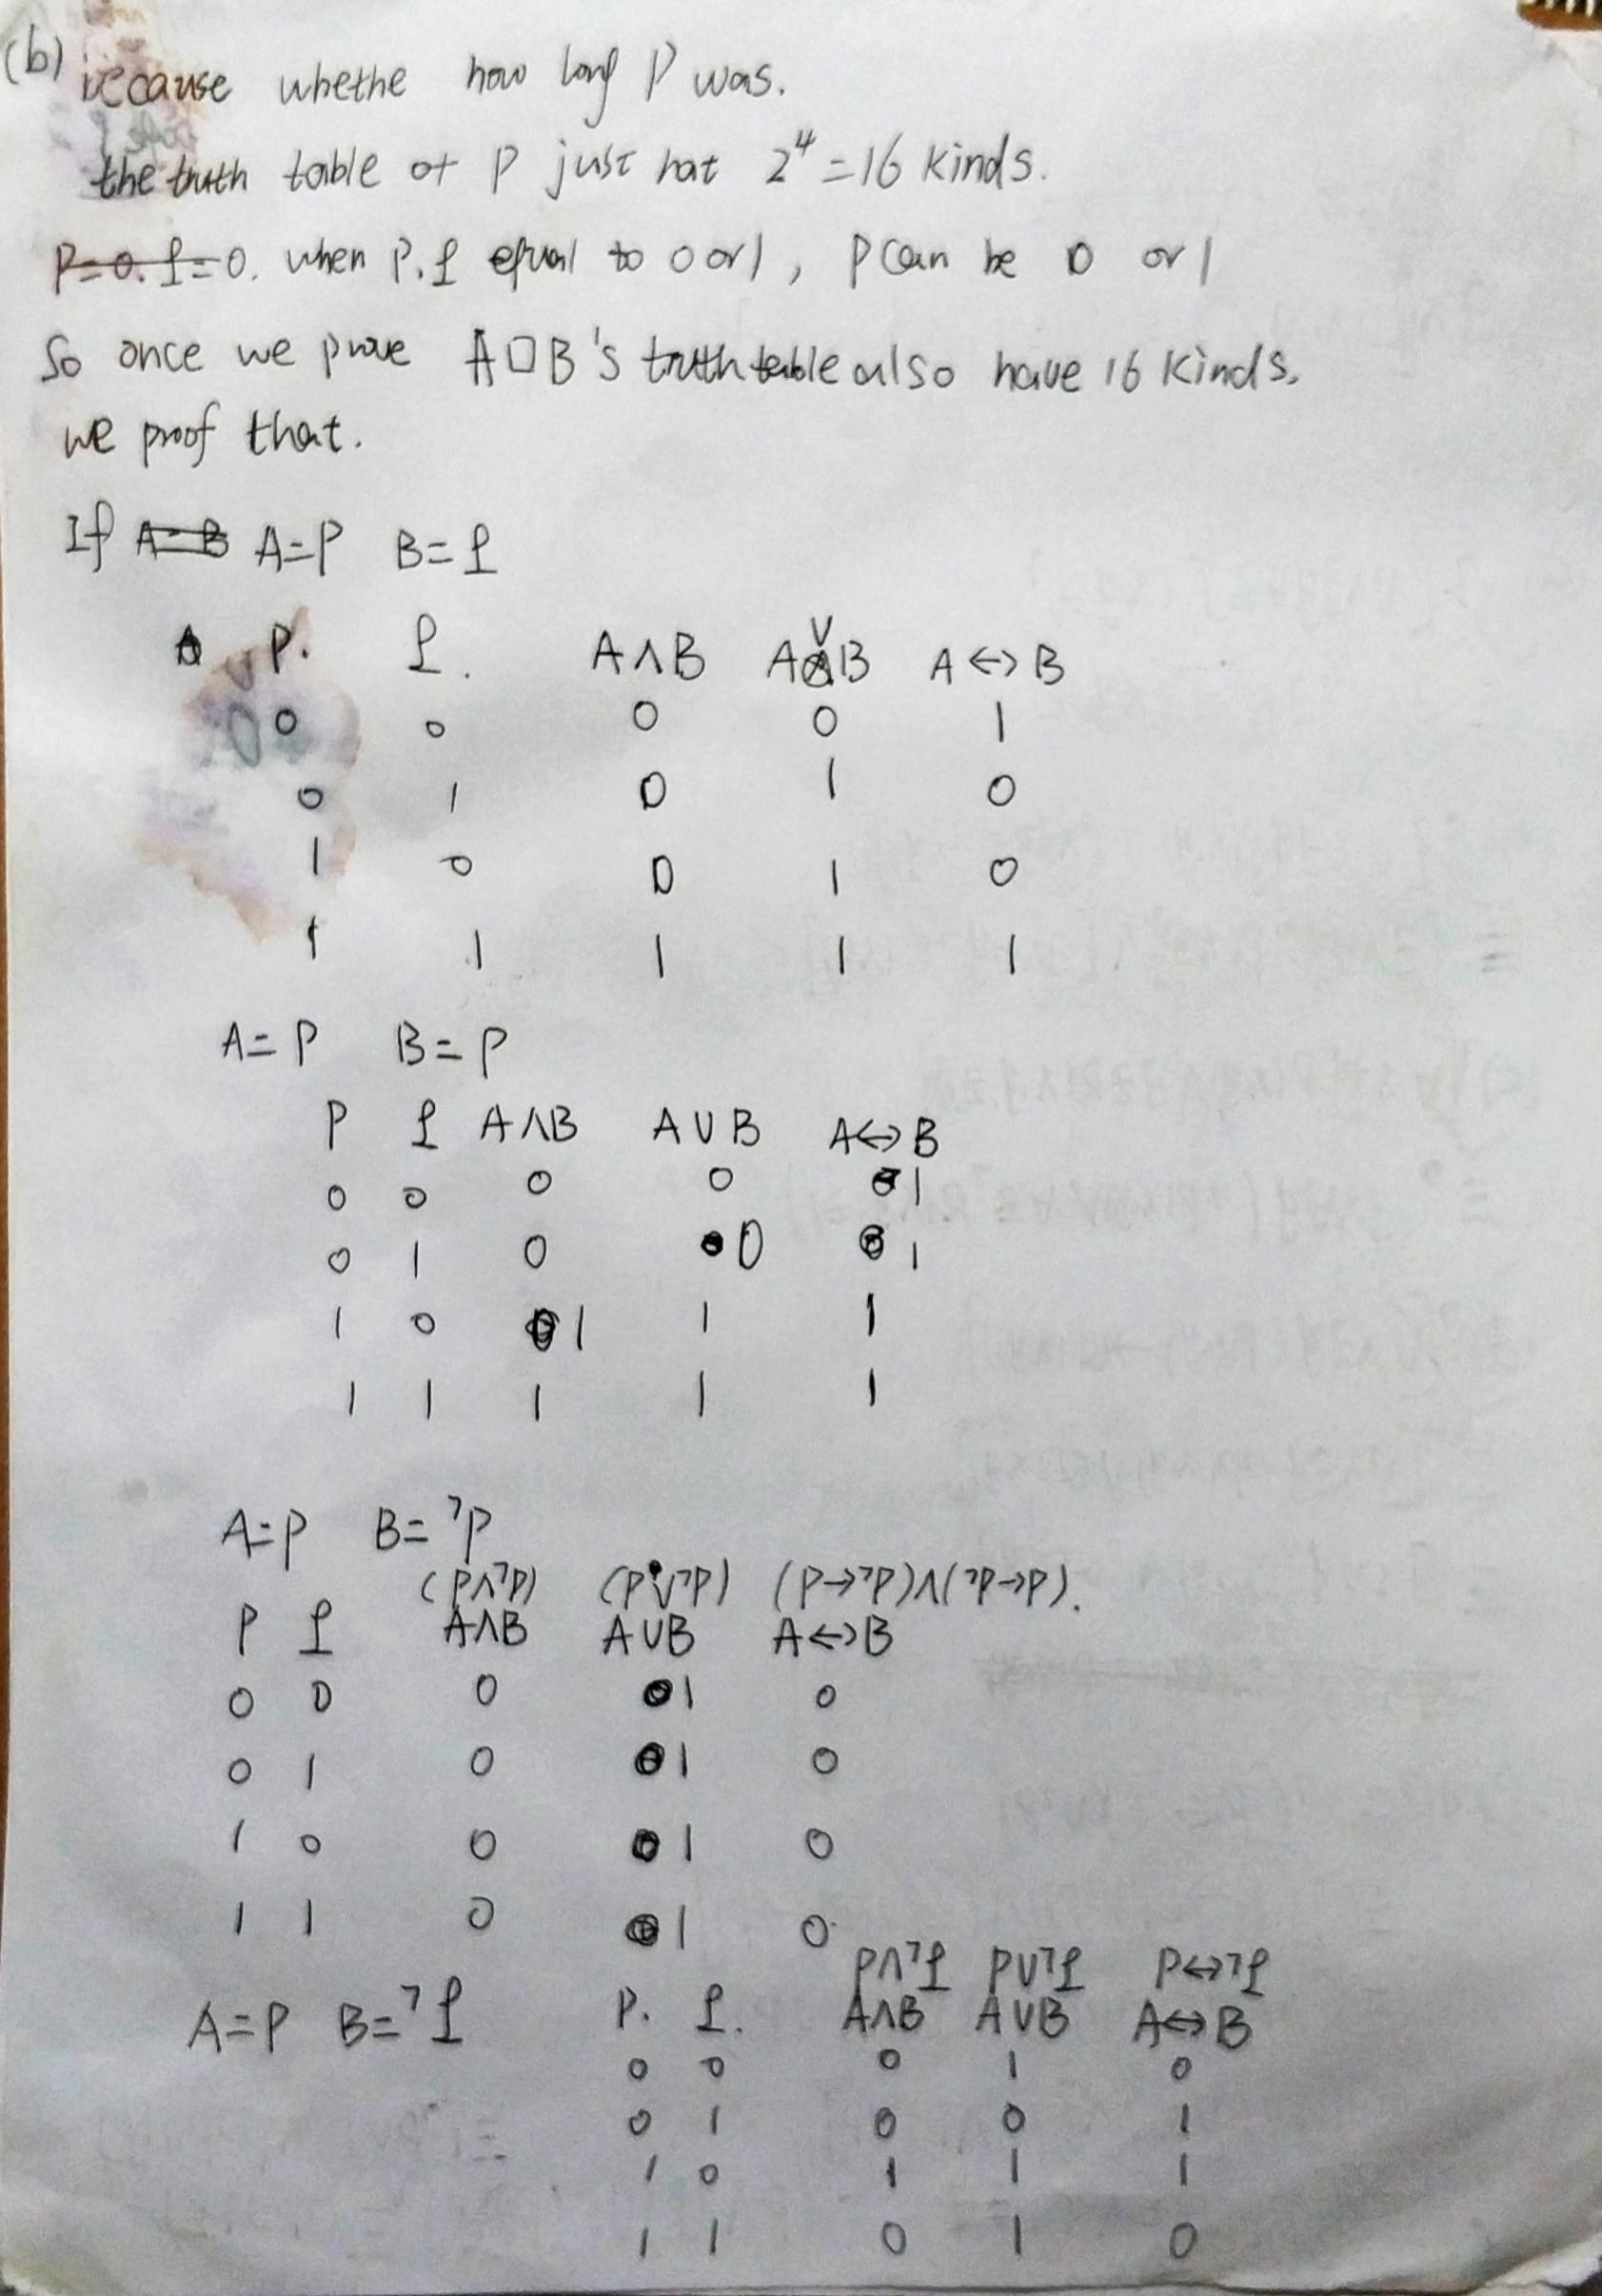 (b) because whethe how long P was.
the truth table of P just hat 2⁴ = 16 kinds.
P=0. q=0. when P. q equal to 0 or 1, P can be 0 or 1
So once we prove A□B's truth table also have 16 kinds.
we proof that.
If A=B A=P B=q
P. q. A∧B A∨B A↔B
0 0 0 0 1
0 1 0 1 0
1 0 0 1 0
1 1 1 1 1
A=P B=P
P q A∧B A∪B A↔B
0 0 0 0 1
0 1 0 0 1
1 0 1 1 1
1 1 1 1 1
A=P B=¬P
(P∧¬P) (P∨¬P) (P→¬P)∧(¬P→P).
P q A∧B A∪B A↔B
0 0 0 1 0
0 1 0 1 0
1 0 0 1 0
1 1 0 1 0
P∧¬q P∪¬q P↔¬q
A=P B=¬q P. q. A∧B A∪B A↔B
0 0 0 1 0
0 1 0 0 1
1 0 1 1 1
1 1 0 1 0